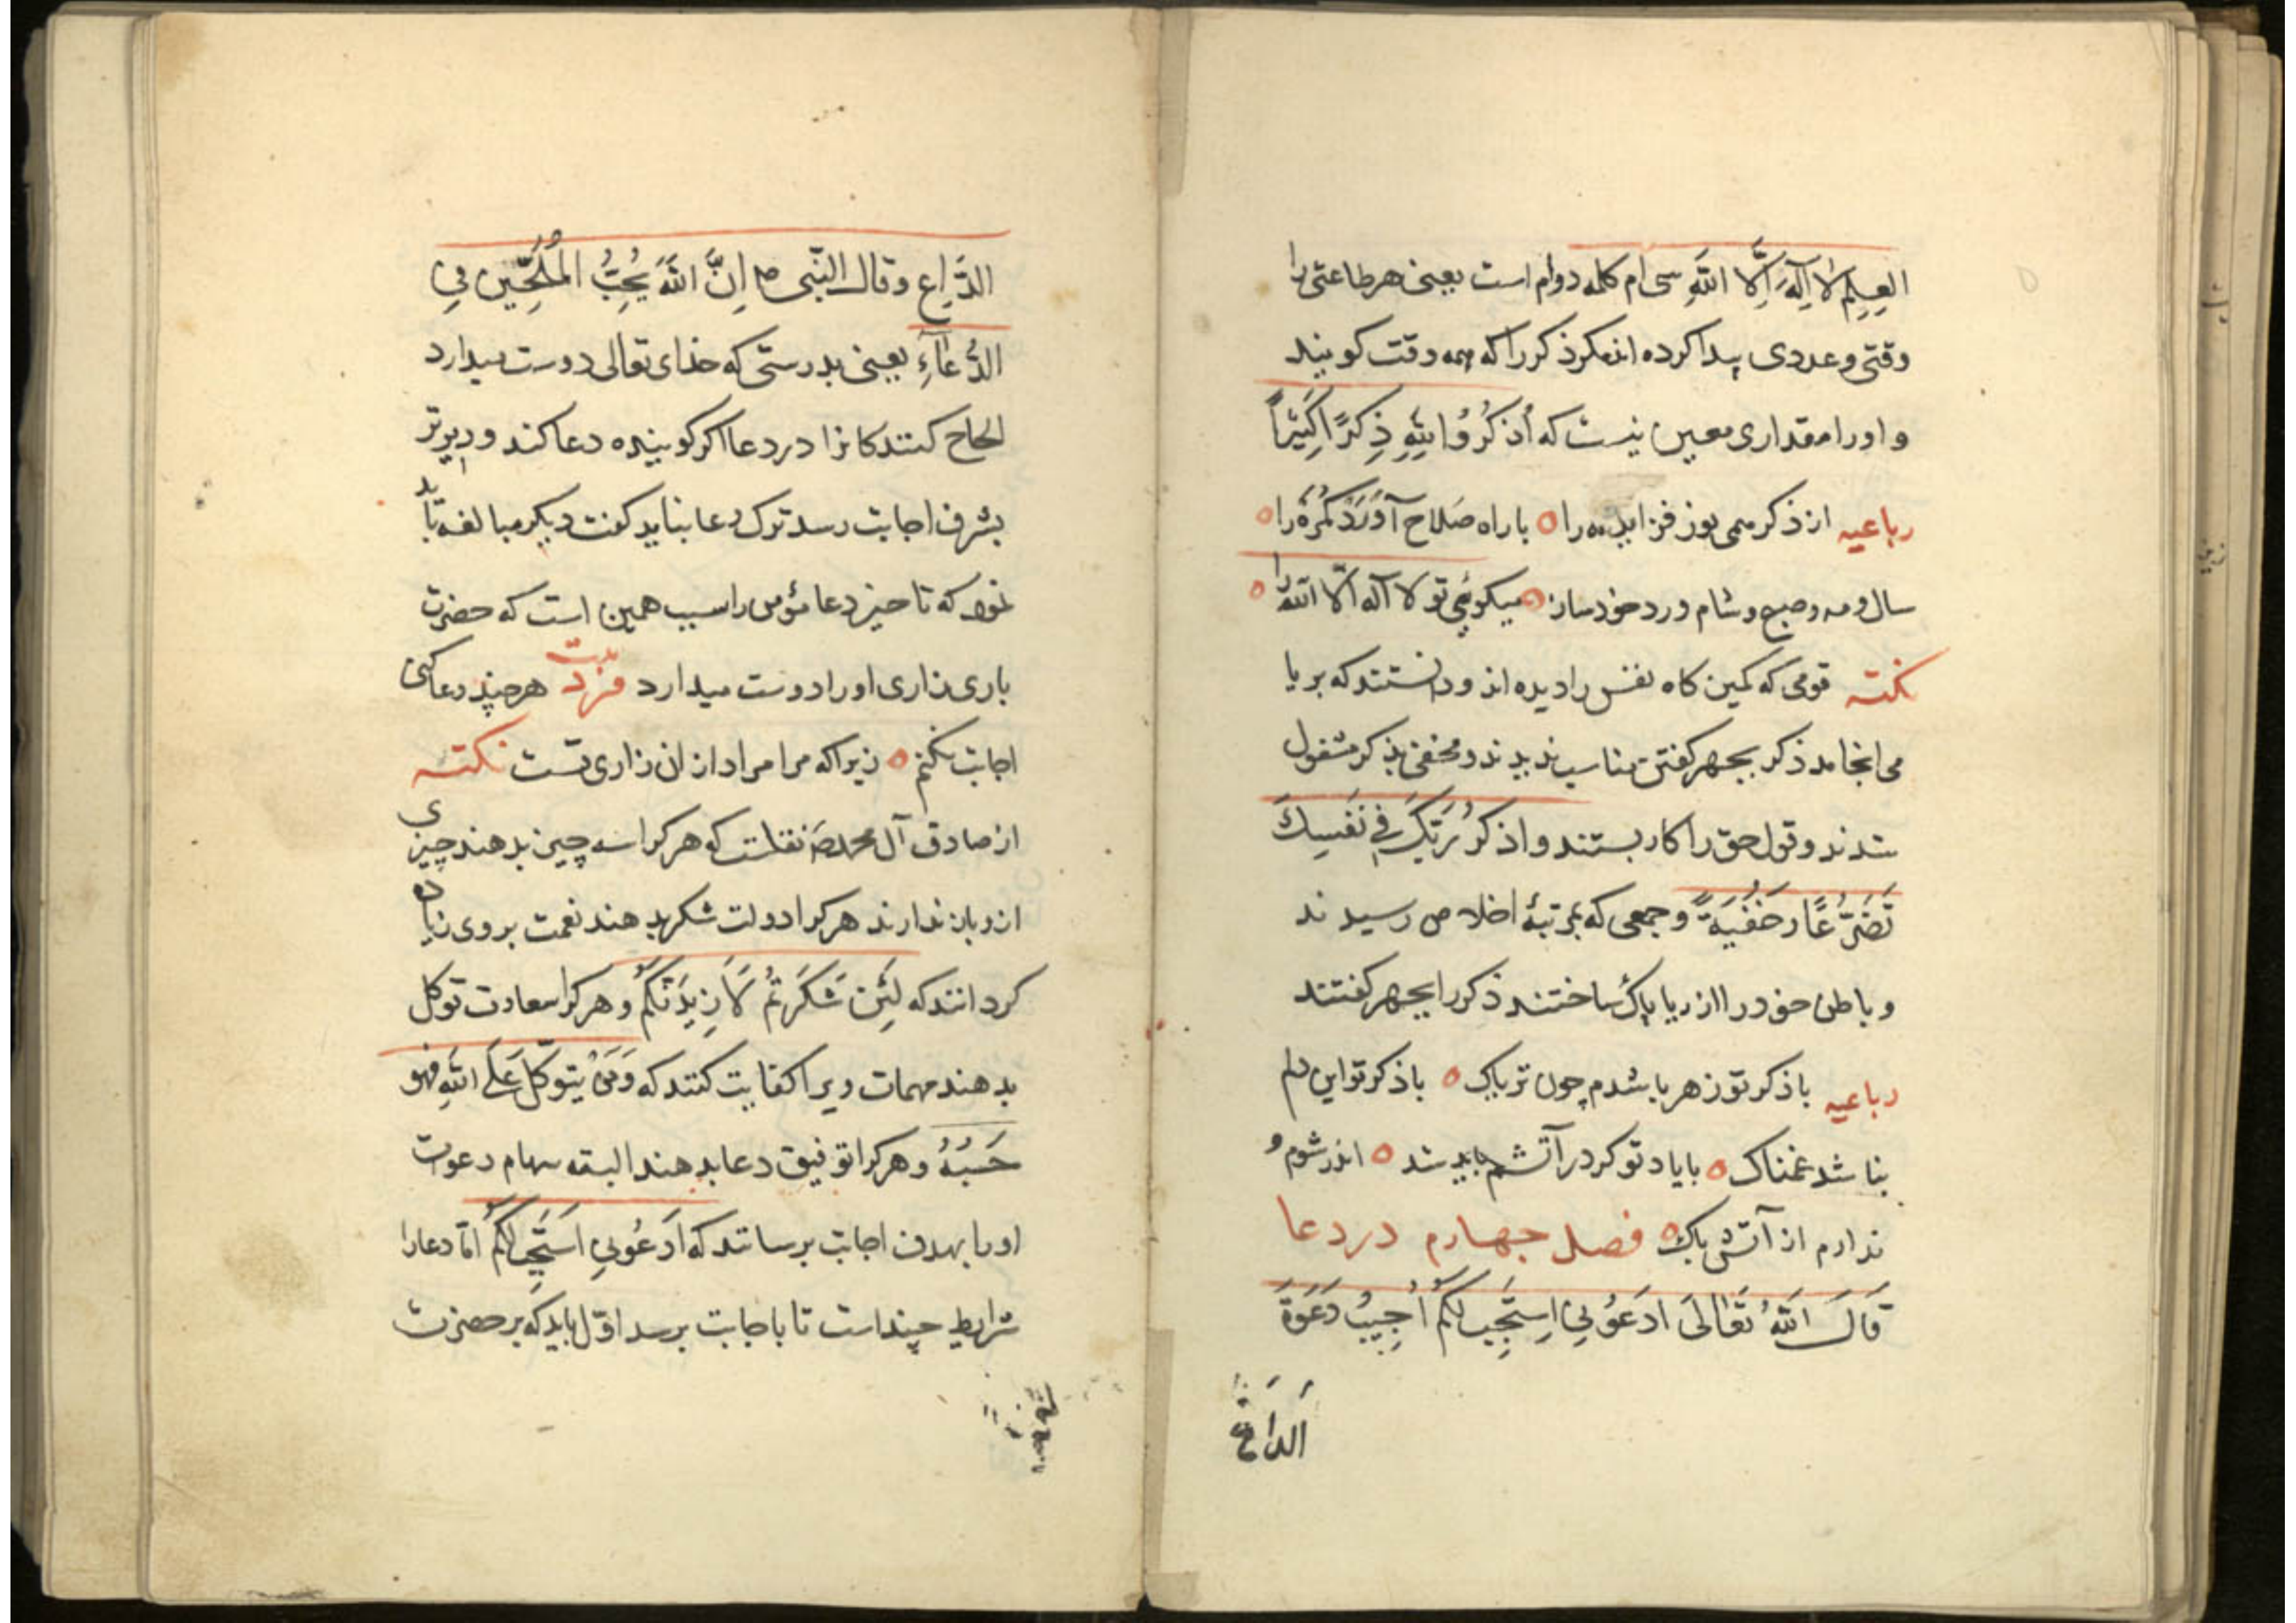 العِلمِ لا اِلهَ اِلَّا اللَّهِ سی ام کلمه دوام است یعنی هر طاعتی را
وقتی و عددی پیدا کرده اند مکر ذکر را که همه وقت کویند
و او را مقداری معین نیست که اُذکُرُوُا لِلّهِ ذِکرًا کَثیرًا
رباعیه از ذکر همی نوز فزاید مه را o با راه صَلاح آوَرَد کمُرَه را o
سال و مه و صبح و شام ورد خود ساز o میکوئی تو لا اله الّا اللّه را o
نکته قومی که کمین کاه نفس را دیده اند و دانستند که بریا
می انجامد ذکر بجهر کفتن مناسب ندیدند و مخفی بذکر مشغول
شدند و قول حق را کار بستند و اذکُر رَبَّکَ فِی نَفسِکَ
تَضَرُّعًا وَ خَفُیَةً و جمعی که بمرتبهٔ اخلاص رسیدند
و باطن خود را از ریا پاک ساختند ذکر را بجهر کفتند
رباعیه با ذکر تو زهر باشدم چون تریاک o با ذکر تو این دلم
نباشد غمناک o با یاد تو کر در آتشم باید شد o اندر شوم و
ندارم از آتش باک o فصل جهارم در دعا
قَالَ اللّهُ تَعَالَی ادعَوُنِی اِستَجِب لَکُم اُجِیبُ دَعَوَةَ
اَلدَاعِ
الدَّاعِ و قال النّبی ص اِنَّ اللَّهَ یُحِبُّ المُلِحّین فِی
الدُّعَآءِ یعینی بدرستی که خدای تعالی دوست میدارد
الحاح کنندکانرا در دعا اکر کوینده دعا کند و دیرتر
بشرف اجابت رسد ترک دعا نباید کفت دیکر مبالغه باید
نمود که تاخیر دعا مؤمن را سبب همین است که حضرت
باری زاری او را دوست میدارد فرد بیت هر چند دعا کنی
اجابت نکنم o زیرا که مرا مراد از ان زاری تست نکته
از صادق آل محمد نقلست که هر کرا سه چیز بدهند چیزی
ازو باز ندارند هر کرا دولت شکر بدهند نعمت بروی زیاده
کردانند که لَئِن شَکَرتُم لَاَزِیدَنَّکُم و هر کرا سعادت توکل
بدهند مهمات ویرا کفایت کنند که وَمَن یتوکّل عَلَی اللّهِ فهو
حَسبُهُ و هر کرا توفیق دعا بدهند البته سهام دعوت
او را بهدف اجابت برسانند که اُدعُونِی اَستَجِب لَکُم امّا دعا را
شرایط چند است تا باجابت برسد اوّل باید که بر حضرت